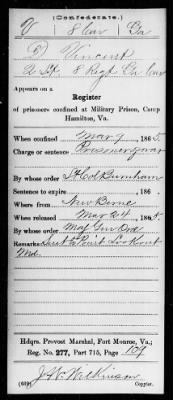 (Confederate.)
V 8 Cav Ga
D Vincent
2 Lt, 8 Regt Ga Cav
Appears on a
Register
of prisoners confined at Military Prison, Camp
Hamilton, Va.
When confined Mar 9, 1865
Charge or sentence Prisoner of war
By whose order Lt Col Burnham
Sentence to expire , 186 .
Where from New Berne
When released Mar 24, 1865.
By whose order Maj Gen Ord
Remarks: Sent to Point Lookout
Md.
Hdqrs. Provost Marshal, Fort Monroe, Va.;
Reg. No. 277, Part 715, Page 107
J. W. Wilkinson
(639) Copyist.